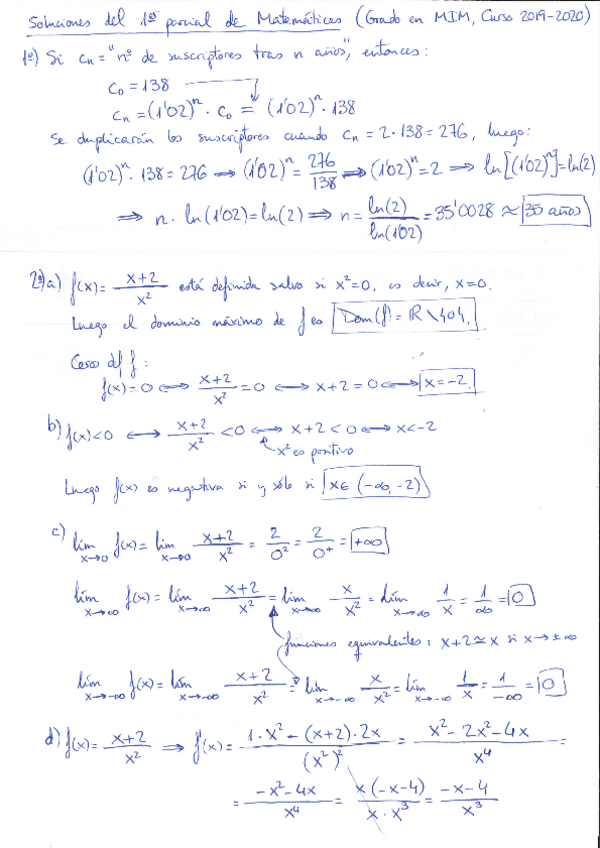 Soluciones del 1º parcial de Matemáticas (Grado en MIM, Curso 2019-2020)
1º) Si cₙ = "nº de suscriptores tras n años", entonces:
c₀ = 138
cₙ = (1'02)ⁿ · c₀ = (1'02)ⁿ · 138
Se duplicarán los suscriptores cuando cₙ = 2 · 138 = 276, luego:
(1'02)ⁿ · 138 = 276 ⟹ (1'02)ⁿ = 276/138 ⟹ (1'02)ⁿ = 2 ⟹ ln[(1'02)ⁿ] = ln(2)
⟹ n · ln(1'02) = ln(2) ⟹ n = ln(2)/ln(1'02) = 35'0028 ≈ 35 años
2º) a) f(x) = (x+2)/x² está definida salvo si x² = 0, es decir, x = 0.
Luego el dominio máximo de f es Dom(f) = ℝ \ {0}.
Ceros de f:
f(x) = 0 ⟺ (x+2)/x² = 0 ⟺ x+2 = 0 ⟺ x = -2.
b) f(x) < 0 ⟺ (x+2)/x² < 0 ⟺ x+2 < 0 ⟺ x < -2
x² es positivo
Luego f(x) es negativa si y sólo si x ∈ (-∞, -2)
c) lím x→0 f(x) = lím x→0 (x+2)/x² = 2/0² = 2/0⁺ = +∞
lím x→∞ f(x) = lím x→∞ (x+2)/x² = lím x→∞ x/x² = lím x→∞ 1/x = 1/∞ = 0
funciones equivalentes: x+2 ≃ x si x → ±∞
lím x→-∞ f(x) = lím x→-∞ (x+2)/x² = lím x→-∞ x/x² = lím x→-∞ 1/x = 1/-∞ = 0
d) f(x) = (x+2)/x² ⟹ f'(x) = (1·x² - (x+2)·2x)/(x²)² = (x² - 2x² - 4x)/x⁴ =
= (-x² - 4x)/x⁴ = x(-x-4)/(x·x³) = (-x-4)/x³